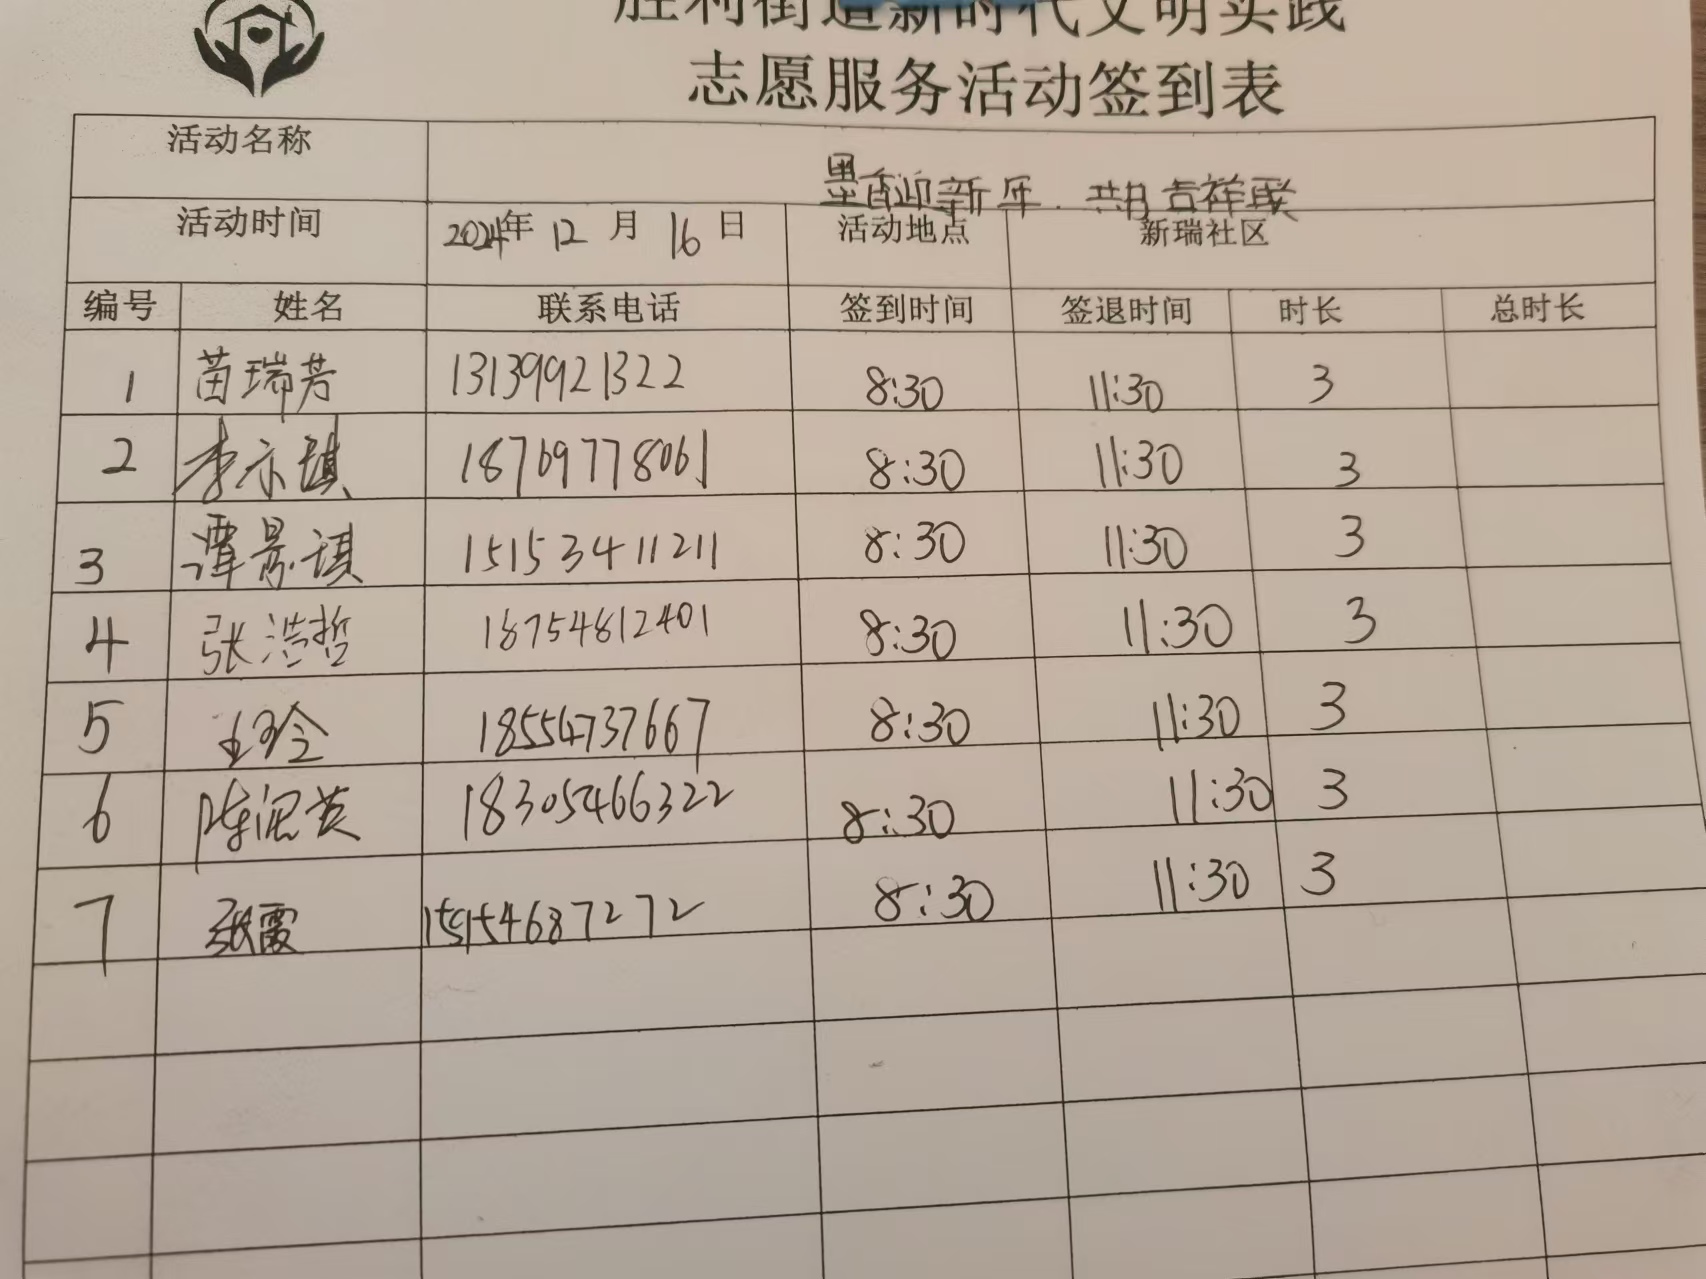 胜利街道新时代文明实践
志愿服务活动签到表
活动名称 墨香迎新年. 共月吉祥联
活动时间 2024年 12 月 16 日 活动地点 新瑞社区
编号 姓名 联系电话 签到时间 签退时间 时长 总时长
1 苗瑞芳 13139921322 8:30 11:30 3
2 李亦琪 18769778061 8:30 11:30 3
3 谭景琪 15153411211 8:30 11:30 3
4 张浩哲 18754812401 8:30 11:30 3
5 18554737667 8:30 11:30 3
6 18305466322 8:30 11:30 3
7 张霞 15154687272 8:30 11:30 3